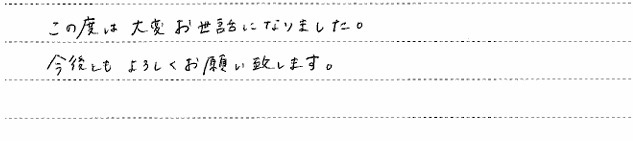 この度は大変お世話になりました。
今後ともよろしくお願い致します。